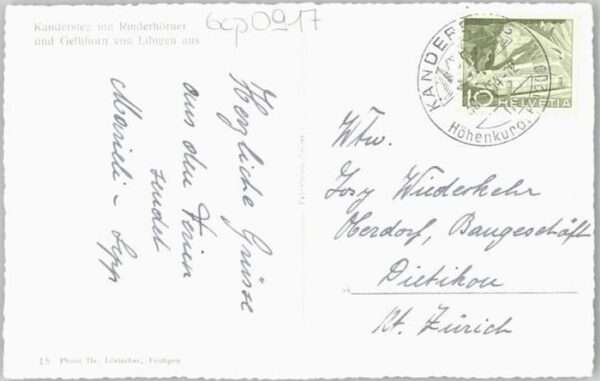 Kandersteg mit Rinderhörner
und Gellihorn von Löhgen aus
bcp0917
Herzliche Grüsse
aus den Ferien
sendet
Marieli - Sepp
KANDERSTEG
Höhenkurort
10 HELVETIA
Wtw.
Josy Wiederkehr
Oberdorf, Baugeschäft
Dietikon
Kt. Zürich
15 Photo Thr.